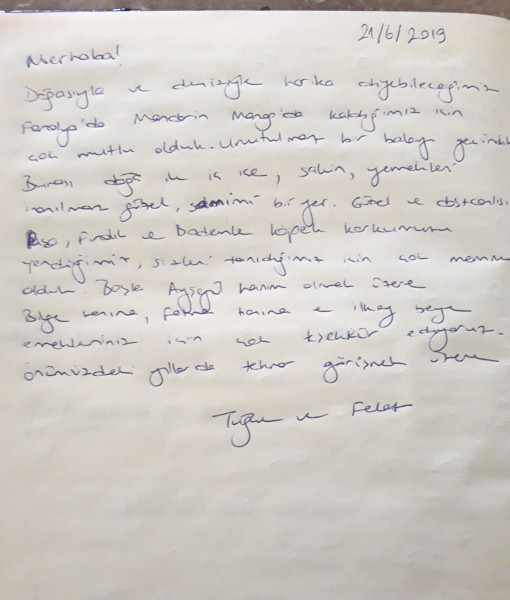 21/6/2019
Merhaba!
Doğasıyla ve deniziyle harika diyebileceğimiz
Faralya'da Mandarin Mango'da kaldığımız için
çok mutlu olduk. Unutulmaz bir balayı geçirdik
Burası doğa ile iç içe, sakin, yemekleri
inanılmaz güzel, samimi bir yer. Güzel ve dostcanlısı
, Fındık ve Bademle köpek korkumuzu
yendiğimiz, sizleri tanıdığımız için çok memnun
olduk. Başta Ayşegül hanım olmak üzere
Bilge hanıma, Fatma hanıma ve ilkay beye
emekleriniz için çok teşekkür ediyoruz.
önümüzdeki yıllarda tekrar görüşmek üzere
ve